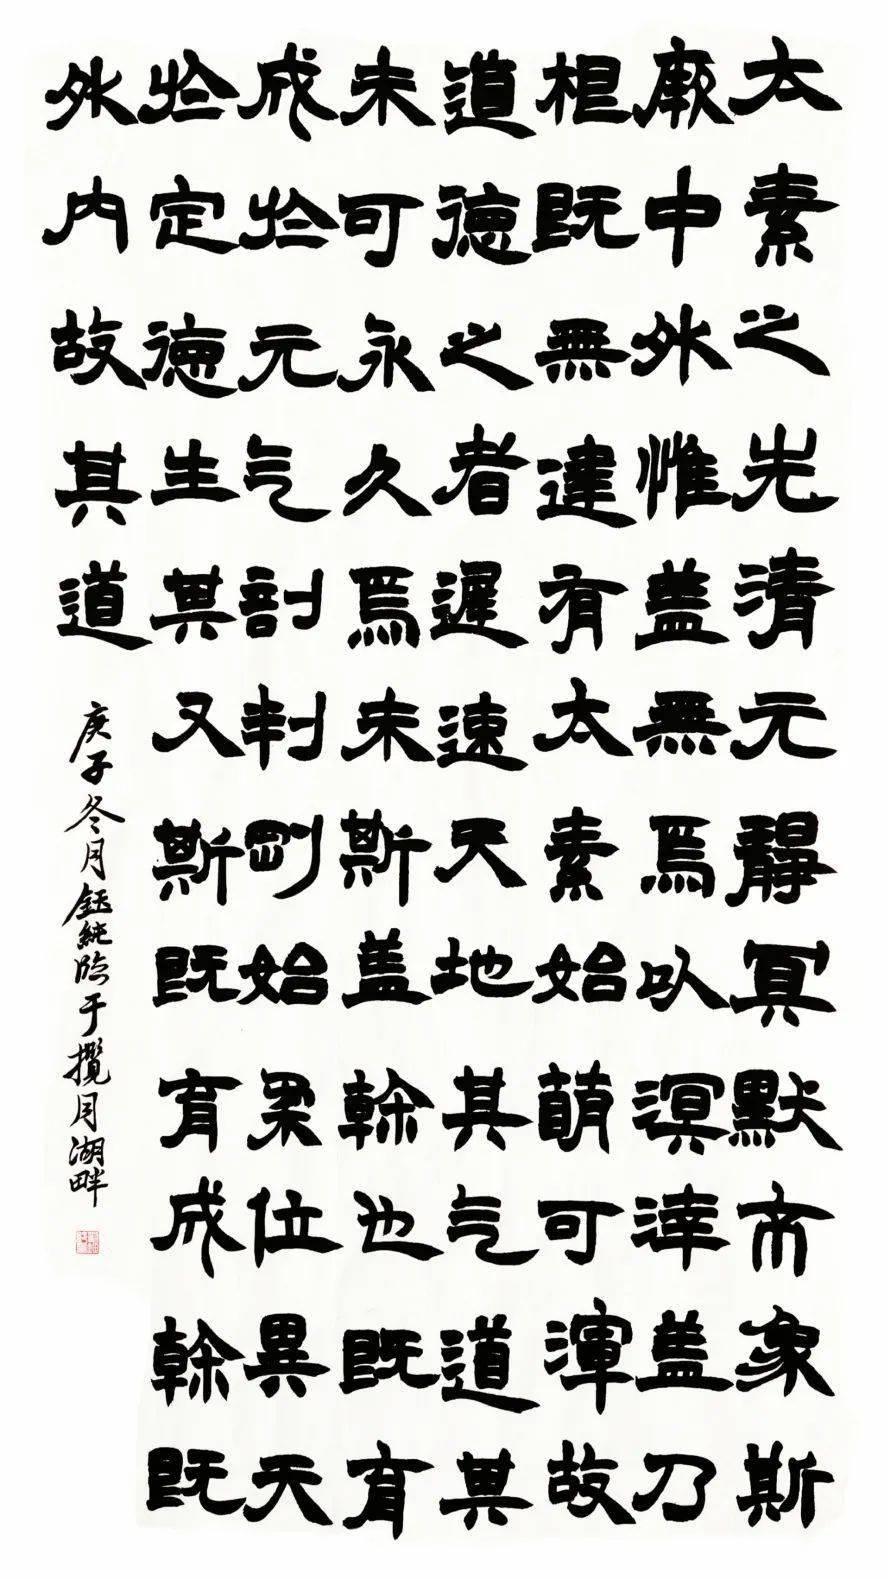 太素之先清元靜冥默象斯
厥中外惟盖無焉以溟涬盖乃
相既無達有太素始萌可渾故
道德之者遲速天地其气道其
未可永久焉未斯盖幹也既育
成於元气剖判剛始柔位異天
於定德生其又斯既育成幹既
外内故其道
庚子冬月鈺純臨于攬月湖畔